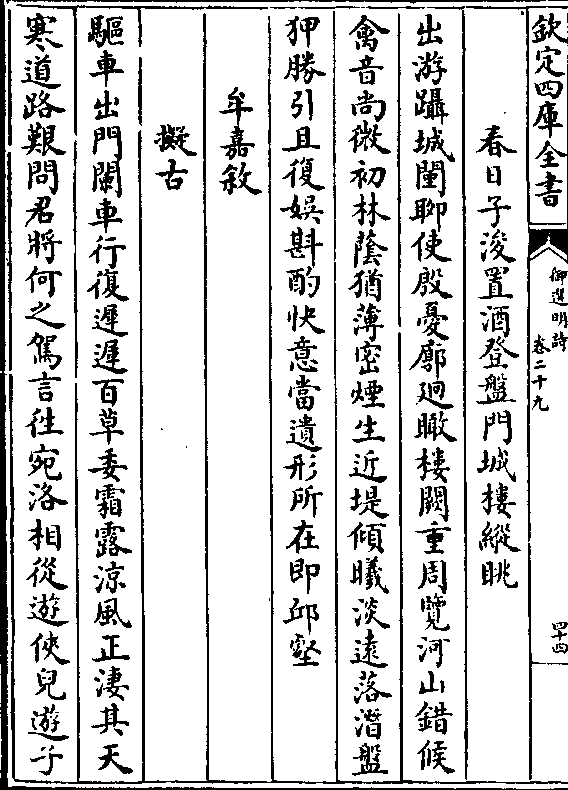 欽定四庫全書
御選明詩
卷二十九
四十四
春日子浚置酒登盤門城樓縱眺
出游躡城闉聊使殷憂廓迥瞰樓闕重周覽河山錯候
禽音尚微初林蔭猶薄密煙生近堤傾曦淡遠落潛盤
狎勝引且復娛斟酌快意當遺形所在即邱壑
牟嘉敘
擬古
驅車出門闌車行復遲遲百草委霜露涼風正淒其天
寒道路艱問君將何之駕言徃宛洛相從遊俠兒遊子